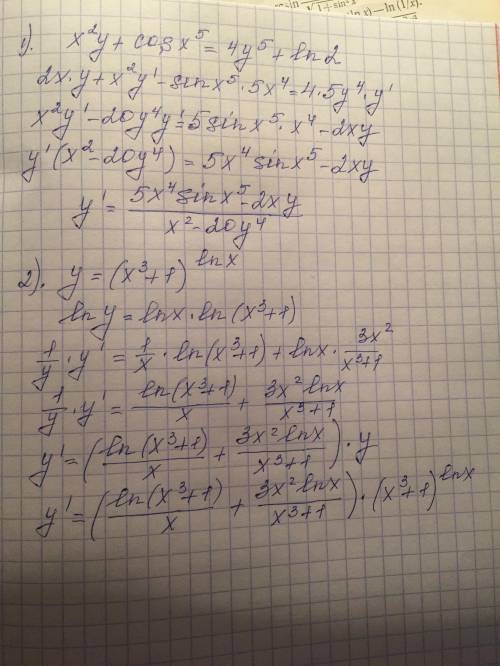 sin √1+sin²x
ln(x) – ln(1/x).
1). x²y + cos x⁵ = 4y⁵ + ln 2
2x·y + x²y' – sin x⁵ · 5x⁴ = 4·5y⁴·y'
x²y' – 20y⁴y' = 5 sin x⁵ · x⁴ – 2xy
y'(x² – 20y⁴) = 5x⁴ sin x⁵ – 2xy
y' = (5x⁴ sin x⁵ – 2xy)/(x² – 20y⁴)
2). y = (x³+1)^(ln x)
ln y = ln x · ln (x³+1)
1/y · y' = 1/x · ln(x³+1) + ln x · 3x²/(x³+1)
1/y · y' = ln(x³+1)/x + 3x² ln x/(x³+1)
y' = (ln(x³+1)/x + 3x² ln x/(x³+1)) · y
y' = (ln(x³+1)/x + 3x² ln x/(x³+1)) · (x³+1)^(ln x)